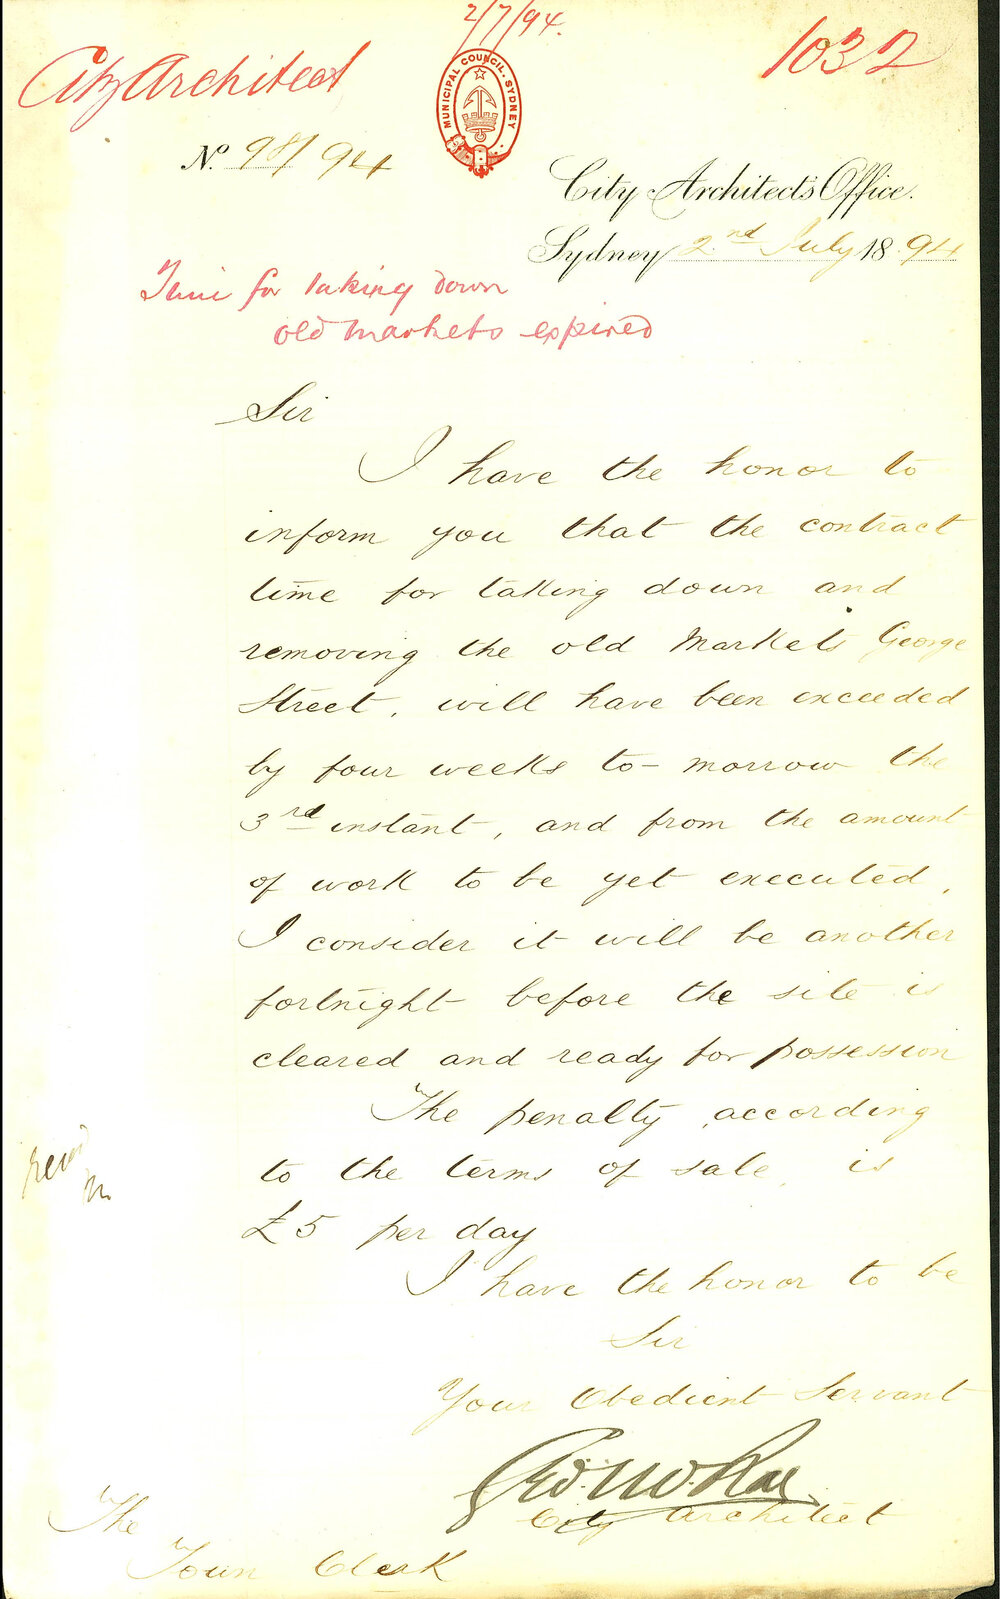 2/7/94.
City Architect
1032
MUNICIPAL COUNCIL. SYDNEY
No. 98/94
City Architect's Office.
Sydney 2nd July 1894
Time for taking down
old markets expired
Sir
I have the honor to
inform you that the contract
time for taking down and
removing the old Markets George
Street, will have been exceeded
by four weeks to-morrow the
3rd instant, and from the amount
of work to be yet executed,
I consider it will be another
fortnight before the site is
cleared and ready for possession
The penalty, according
to the terms of sale, is
£5 per day
I have the honor to be
Sir
Your Obedient Servant
Geo. McRae
City Architect
The
Town Clerk